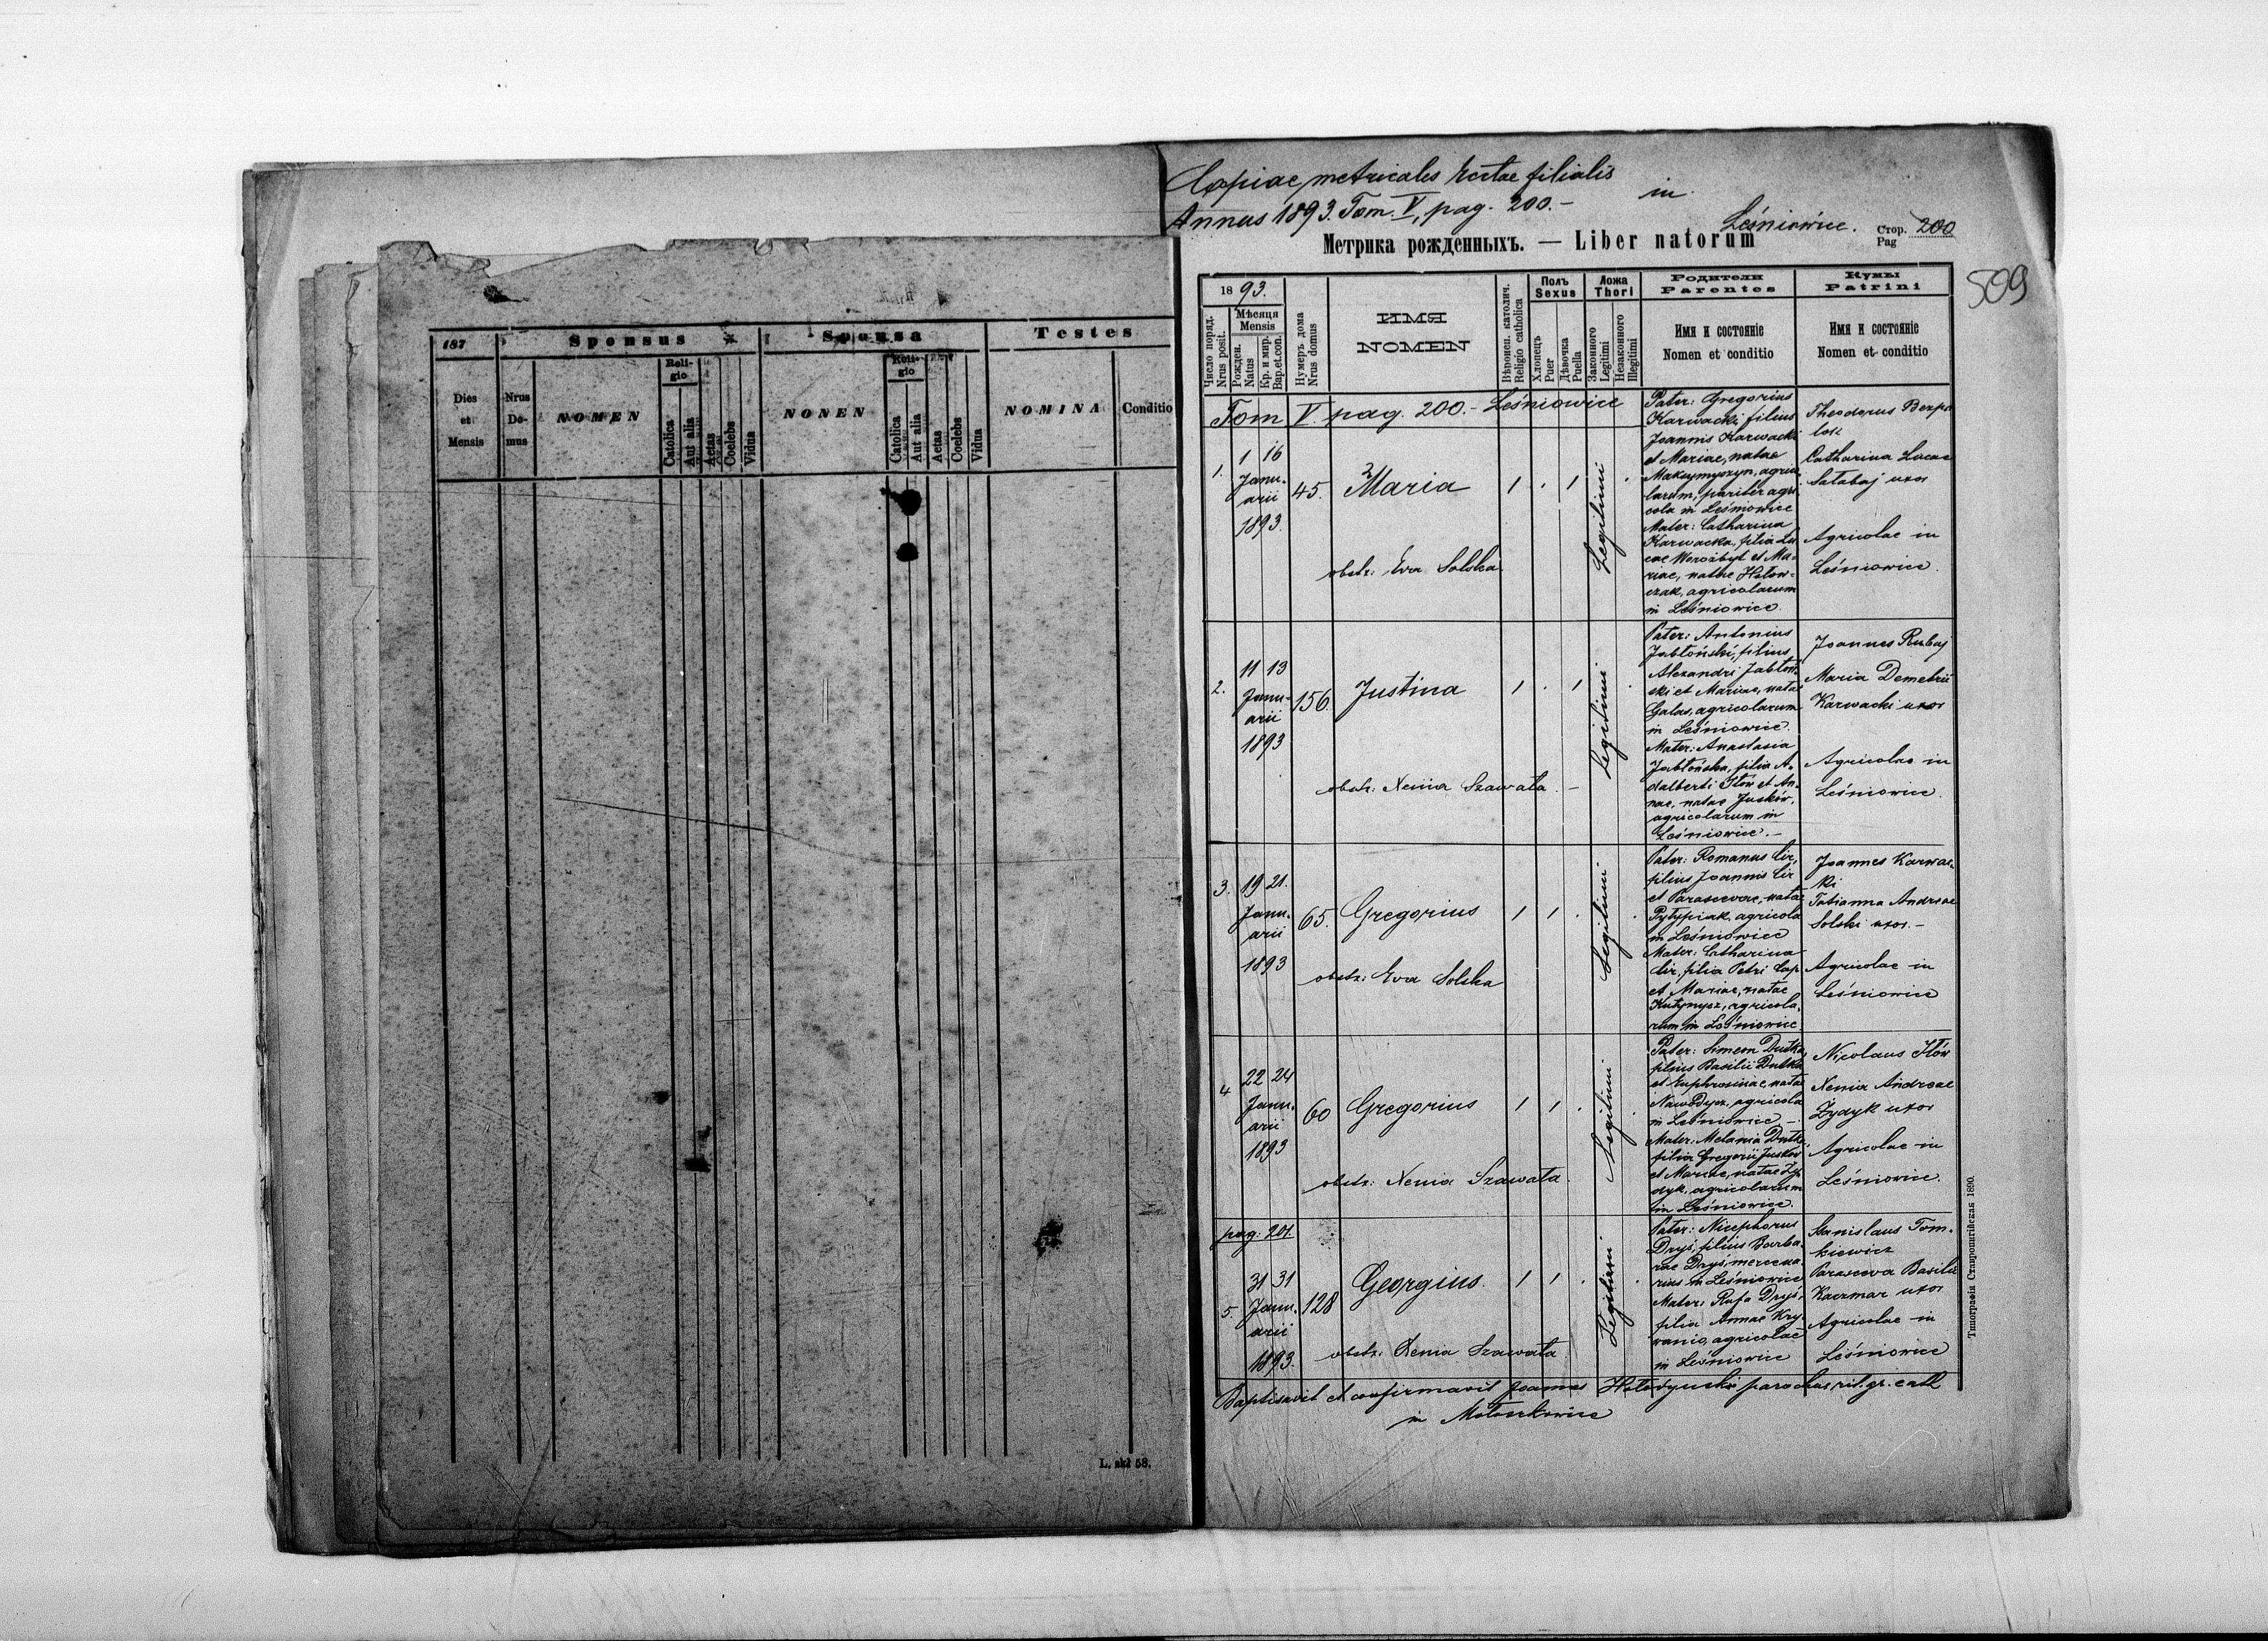 187
Sponsus
Sponsa
Testes
Dies
et
Mensis
Nrus
Do-
mus
NOMEN
Reli-
gio
Catolica
Aut alia
Aetas
Coelebs
Vidua
NONEN
Reli-
gio
Catolica
Aut alia
Aetas
Coelebs
Vidua
NOMINA
Conditio
L. skł 58.
Copiae metricales filialis
in
Annus 1893. Tom. V, pag. 200.-
Leśniowice.
Метрика рожденныхъ. — Liber natorum
Стор.
Pag 200
509
1893.
Число поряд.
Nrus posit.
Мѣсяця
Mensis
Рожден.
Natus
Кр. и мир.
Bap.et.con.
Нумеръ дома
Nrus domus
ИМЯ
NOMEN
Вѣроиспов. католич.
Religio catholica
Полъ
Sexus
Хлопецъ
Puer
Дѣвочка
Puella
Ложа
Thori
Законного
Legitimi
Незаконного
Illegitimi
Родители
Parentes
Имя и состояніе
Nomen et conditio
Кумы
Patrini
Имя и состояніе
Nomen et conditio
Tom V. pag. 200.- Leśniowice
1.
1 16
Janu-
arii
1893.
45.
Maria
obstr: Eva Solska
Legitimi
Pater: Gregorius
Karwacki filius
Joannis Karwacki
et Mariae, natae
Maksymyszyn, agrico
larum, pariter agri-
cola in Leśniowice
Mater: Catharina
Karwacka, filia Lu
cae Worożbyt et Ma-
riae, natae Hołow-
czak, agricolarum
in Leśniowice.
Theodorus
Catharina Lucae
Sałabaj uxor
Agricolae in
Leśniowice.
2.
11 13
Janu-
arii
1893
156.
Justina
obstr: Xenia Szawała.-
Legitimi
Pater: Antonius
Jabłoński, filius
Alexandri Jabłoń-
ski et Mariae, natae
Galas, agricolarum
in Leśniowice.
Mater: Anastasia
Jabłońska, filia A-
dalberti Iłów et An-
nae, natae Juskiw,
agricolarum in
Leśniowice.-
Joannes Rubaj
Maria Demetrii
Karwacki uxor
Agricolae in
Leśniowice.
3.
19 21.
Janu-
arii
1893
65.
Gregorius
obstr: Eva Solska
Legitimi
Pater: Romanus Cir,
filius Joannis Cir
et Parascevae, natae
Pyłypiak, agricola
in Leśniowice
Mater: Catharina
Cir, filia Petri Cap
et Mariae, natae
Kutynysz, agricola-
rum in Leśniowice
Joannes Karwac-
ki
Tatianna Andreae
Solski uxor.-
Agricolae in
Leśniowice
4
22 24
Janu-
arii
1893
60
Gregorius
obstr: Xenia Szawała.
Legitimi
Pater: Simeon Dutka,
filius Basilii Dutka
et Euphrosinae, natae
agricola
in Leśniowice.-
Mater: Melania Dutka,
filia Gregorii Juskow
et Mariae, natae Ży-
dyk, agricolarum
in Leśniowice.
Nicolaus Iłów
Xenia Andreae
Żydyk uxor
Agricolae in
Leśniowice.
pag. 201.
5.
31 31
Janu-
arii
1893.
128
Georgius.
obstr: Xenia Szawała
Legitimi
Pater: Nicephorus
Dryś, filius Barba-
rae Dryś, mercena-
rius in Leśniowice
Mater: Rosa Dryś,
filia Annae Kry-
wanio, agricolae
in Leśniowice
Stanislaus Tom-
kiewicz
Parasceva Basilii
Kaczmar uxor
Agricolae in
Leśniowice
Baptisavit et confirmavit Joannes Hołodyński parochus rit. gr. cath
in Mołoszkowice
Типографія Ставропигійская 1890.